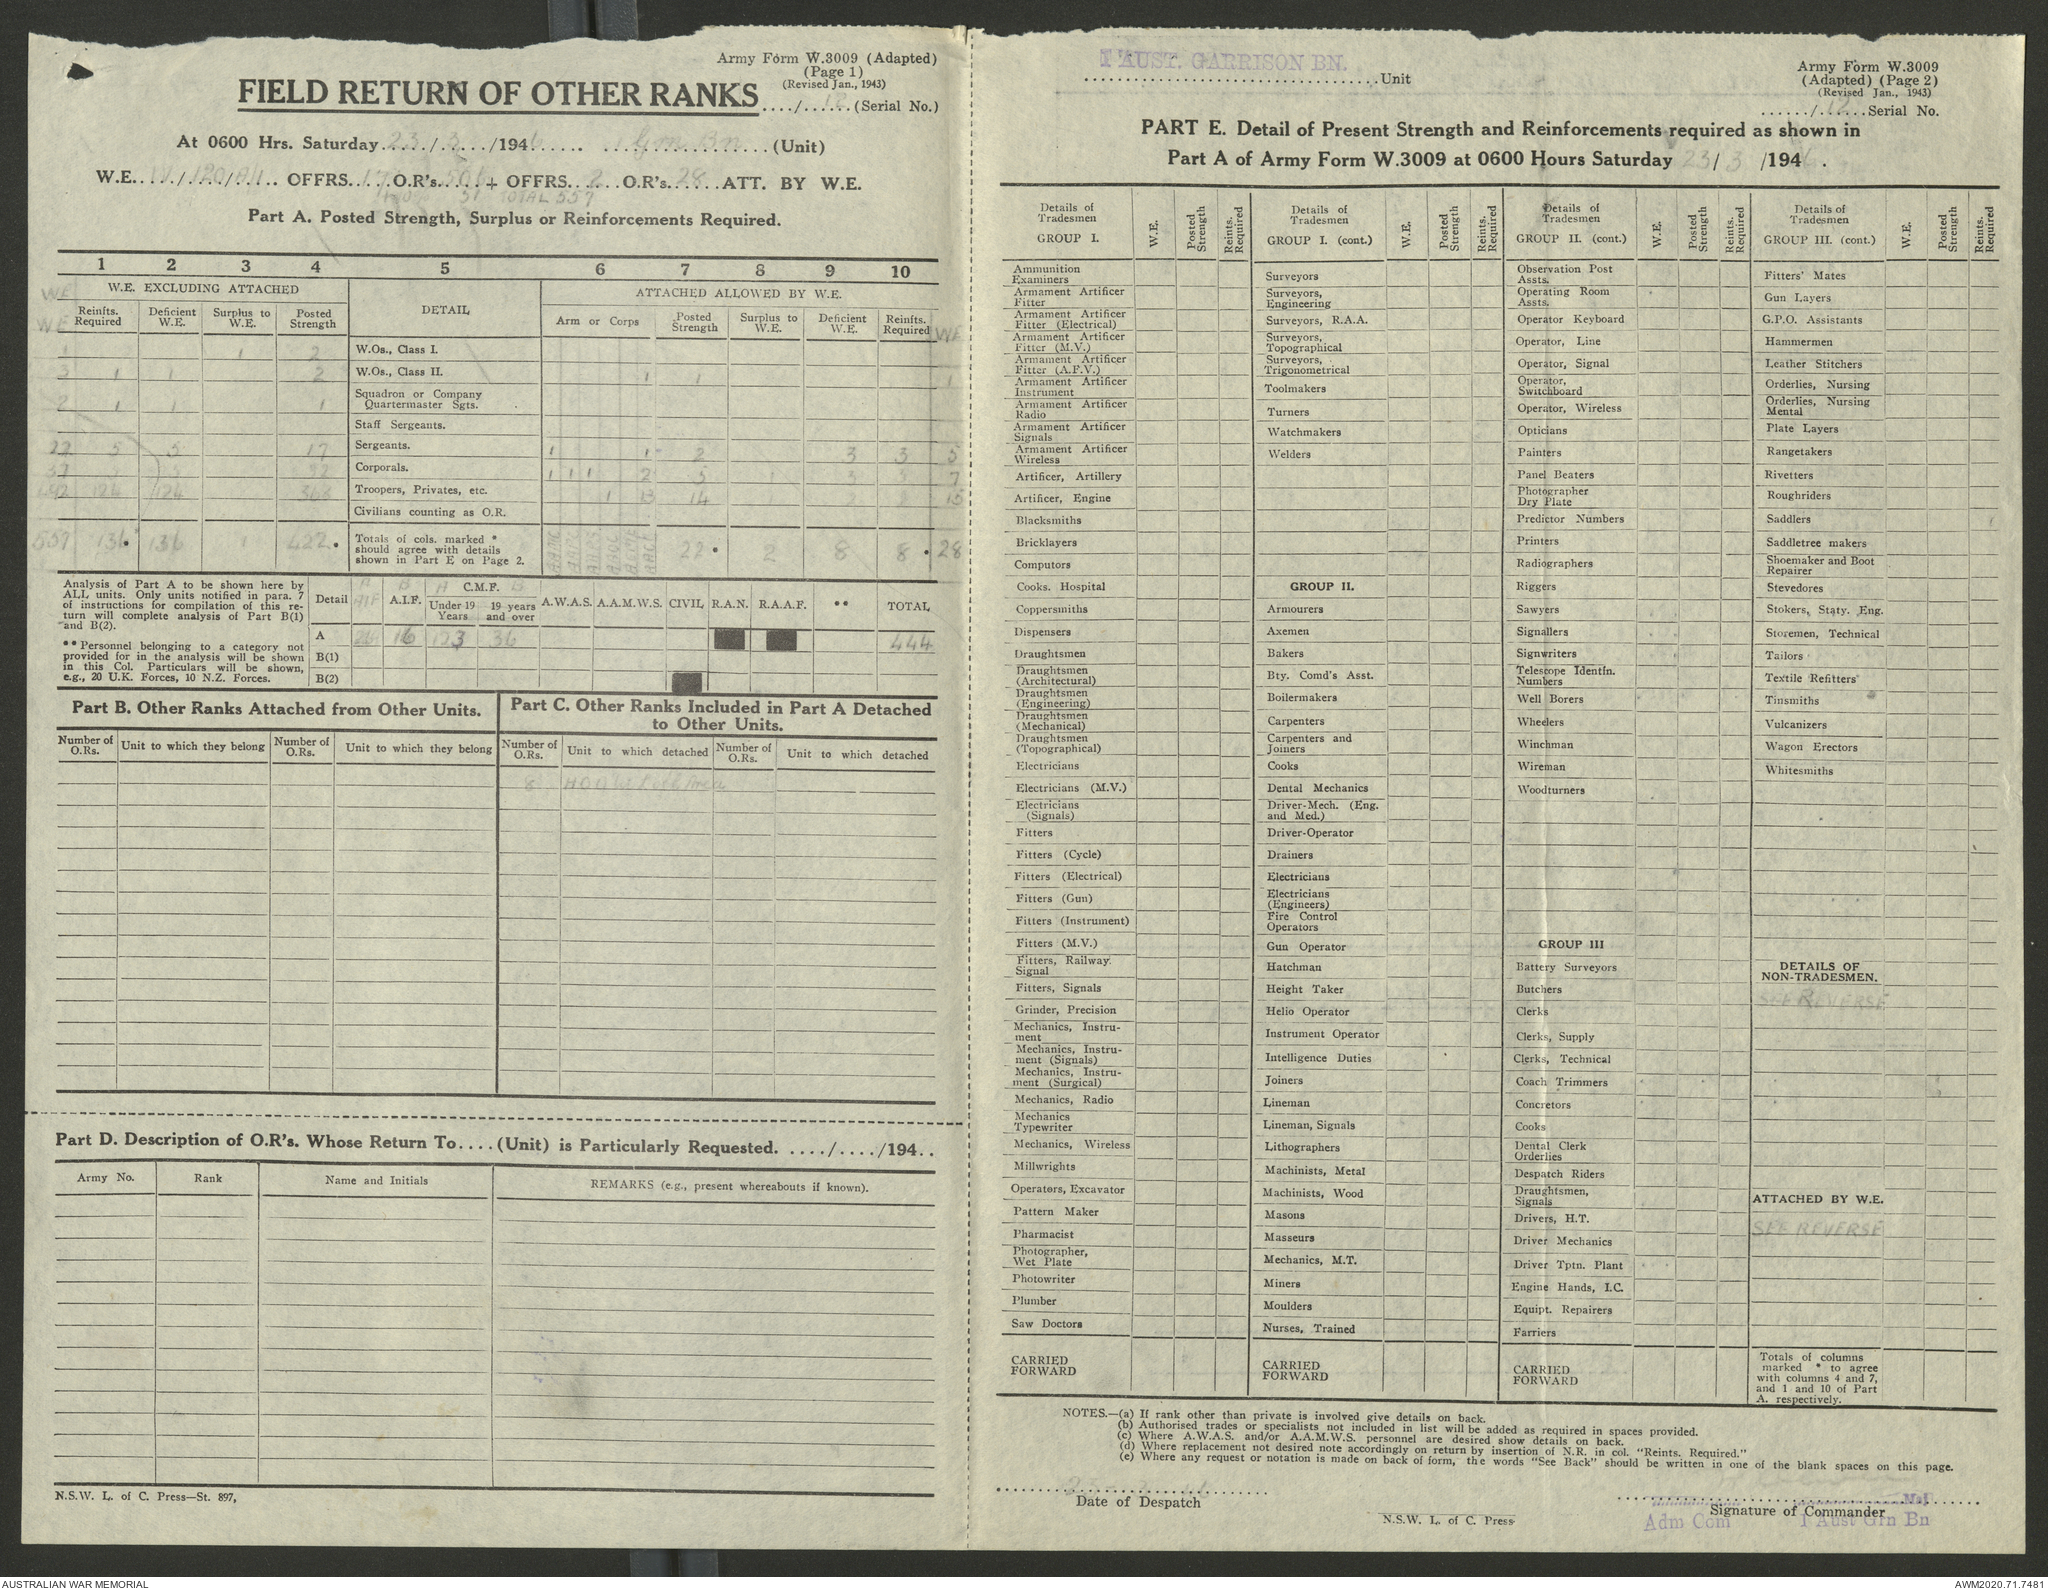 Army Form W.3009 (Adapted)
(Page 1)
(Revised Jan., 1943)
FIELD RETURN OF OTHER RANKS..../12......(Serial No.)
At 0600 Hrs. Saturday 23/3/1946 Grn Bn (Unit)
W.E. OFFRS. 17 O.R's. 506 + OFFRS. 2 O.R's. 28 ATT. BY W.E.
51 TOTAL 557
Part A. Posted Strength, Surplus or Reinforcements Required.
1 2 3 4 5 6 7 8 9 10
W.E. EXCLUDING ATTACHED DETAIL ATTACHED ALLOWED BY W.E.
WE Reinfts. Required Deficient W.E. Surplus to W.E. Posted Strength Arm or Corps Posted Strength Surplus to W.E. Deficient W.E. Reinfts. Required WE
1 1 2 W.Os., Class I.
3 1 1 2 W.Os., Class II. 1 1 1
2 1 1 1 Squadron or Company Quartermaster Sgts.
Staff Sergeants.
22 5 5 17 Sergeants. 1 1 2 3 3 5
Corporals. 1 1 1 2 5 3 3 7
492 124 124 368 Troopers, Privates, etc. 1 13 14 15
Civilians counting as O.R.
557 136 136 1 422 Totals of cols. marked * should agree with details shown in Part E on Page 2. 22 2 8 8 28
Analysis of Part A to be shown here by
ALL units. Only units notified in para. 7
of instructions for compilation of this re-
turn will complete analysis of Part B(1)
and B(2).
** Personnel belonging to a category not
provided for in the analysis will be shown
in this Col. Particulars will be shown,
e.g., 20 U.K. Forces, 10 N.Z. Forces.
Detail A AIF B A.I.F. C.M.F. A Under 19 Years B 19 years and over A.W.A.S. A.A.M.W.S. CIVIL R.A.N. R.A.A.F. ** TOTAL
A 16 36 444
B(1)
B(2)
Part B. Other Ranks Attached from Other Units.
Number of O.Rs. Unit to which they belong Number of O.Rs. Unit to which they belong
Part C. Other Ranks Included in Part A Detached
to Other Units.
Number of O.Rs. Unit to which detached Number of O.Rs. Unit to which detached
8
Part D. Description of O.R's. Whose Return To....(Unit) is Particularly Requested. ..../..../194..
Army No. Rank Name and Initials REMARKS (e.g., present whereabouts if known).
N.S.W. L. of C. Press—St. 897,
1 AUST. GARRISON BN.
Unit
Army Form W.3009
(Adapted) (Page 2)
(Revised Jan., 1943)
....../12......Serial No.
PART E. Detail of Present Strength and Reinforcements required as shown in
Part A of Army Form W.3009 at 0600 Hours Saturday 23/3/1946.
Details of Tradesmen GROUP I. W.E. Posted Strength Reints. Required
Ammunition Examiners
Armament Artificer Fitter
Armament Artificer Fitter (Electrical)
Armament Artificer Fitter (M.V.)
Armament Artificer Fitter (A.F.V.)
Armament Artificer Instrument
Armament Artificer Radio
Armament Artificer Signals
Armament Artificer Wireless
Artificer, Artillery
Artificer, Engine
Blacksmiths
Bricklayers
Computors
Cooks. Hospital
Coppersmiths
Dispensers
Draughtsmen
Draughtsmen (Architectural)
Draughtsmen (Engineering)
Draughtsmen (Mechanical)
Draughtsmen (Topographical)
Electricians
Electricians (M.V.)
Electricians (Signals)
Fitters
Fitters (Cycle)
Fitters (Electrical)
Fitters (Gun)
Fitters (Instrument)
Fitters (M.V.)
Fitters, Railway. Signal
Fitters, Signals
Grinder, Precision
Mechanics, Instru-
ment
Mechanics, Instru-
ment (Signals)
Mechanics, Instru-
ment (Surgical)
Mechanics, Radio
Mechanics Typewriter
Mechanics, Wireless
Millwrights
Operators, Excavator
Pattern Maker
Pharmacist
Photographer, Wet Plate
Photowriter
Plumber
Saw Doctors
CARRIED FORWARD
Details of Tradesmen GROUP I. (cont.) W.E. Posted Strength Reints. Required
Surveyors
Surveyors, Engineering
Surveyors, R.A.A.
Surveyors, Topographical
Surveyors, Trigonometrical
Toolmakers
Turners
Watchmakers
Welders
GROUP II.
Armourers
Axemen
Bakers
Bty. Comd's Asst.
Boilermakers
Carpenters
Carpenters and Joiners
Cooks
Dental Mechanics
Driver-Mech. (Eng. and Med.)
Driver-Operator
Drainers
Electricians
Electricians (Engineers)
Fire Control Operators
Gun Operator
Hatchman
Height Taker
Helio Operator
Instrument Operator
Intelligence Duties
Joiners
Lineman
Lineman, Signals
Lithographers
Machinists, Metal
Machinists, Wood
Masons
Masseurs
Mechanics, M.T.
Miners
Moulders
Nurses, Trained
CARRIED FORWARD
Details of Tradesmen GROUP II. (cont.) W.E. Posted Strength Reints. Required
Observation Post Assts.
Operating Room Assts.
Operator Keyboard
Operator, Line
Operator, Signal
Operator, Switchboard
Operator, Wireless
Opticians
Painters
Panel Beaters
Photographer Dry Plate
Predictor Numbers
Printers
Radiographers
Riggers
Sawyers
Signallers
Signwriters
Telescope Identfn. Numbers
Well Borers
Wheelers
Winchman
Wireman
Woodturners
GROUP III
Battery Surveyors
Butchers
Clerks
Clerks, Supply
Clerks, Technical
Coach Trimmers
Concretors
Cooks
Dental Clerk Orderlies
Despatch Riders
Draughtsmen, Signals
Drivers, H.T.
Driver Mechanics
Driver Tptn. Plant
Engine Hands, I.C.
Equipt. Repairers
Farriers
CARRIED FORWARD
Details of Tradesmen GROUP III. (cont.) W.E. Posted Strength Reints. Required
Fitters' Mates
Gun Layers
G.P.O. Assistants
Hammermen
Leather Stitchers
Orderlies, Nursing
Orderlies, Nursing Mental
Plate Layers
Rangetakers
Rivetters
Roughriders
Saddlers
Saddletree makers
Shoemaker and Boot Repairer
Stevedores
Stokers, Staty. Eng.
Storemen, Technical
Tailors
Textile Refitters
Tinsmiths
Vulcanizers
Wagon Erectors
Whitesmiths
DETAILS OF NON-TRADESMEN.
SEE REVERSE
ATTACHED BY W.E.
SEE REVERSE
Totals of columns
marked * to agree
with columns 4 and 7,
and 1 and 10 of Part
A. respectively.
NOTES.—(a) If rank other than private is involved give details on back.
(b) Authorised trades or specialists not included in list will be added as required in spaces provided.
(c) Where A.W.A.S. and/or A.A.M.W.S. personnel are desired show details on back.
(d) Where replacement not desired note accordingly on return by insertion of N.R. in col. "Reints. Required."
(e) Where any request or notation is made on back of form, the words "See Back" should be written in one of the blank spaces on this page.
Date of Despatch
N.S.W. L. of C. Press
Maj
Signature of Commander
Adm Com 1 Aust Grn Bn
AUSTRALIAN WAR MEMORIAL
AWM2020.71.7481